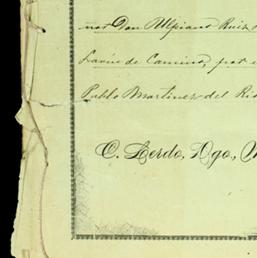 ñor Don Ulpiano Ruiz
Lavín de Camino, por
Pablo Martínez del Rí
C. Lerdo, Dgo.,